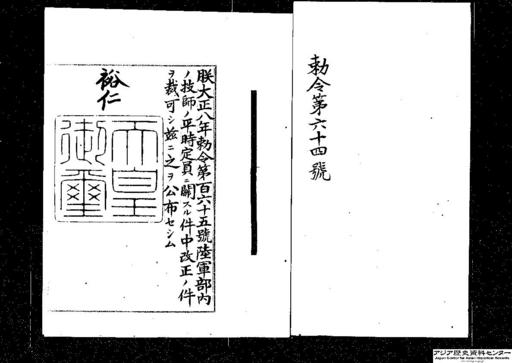 勅令第六十四號
朕大正八年勅令第百六十五號陸軍部內
ノ技師ノ平時定員ニ關スル件中改正ノ件
ヲ裁可シ玆ニ之ヲ公布セシム
裕仁
天皇
御璽
アジア歴史資料センター
Japan Center for Asian Historical Records